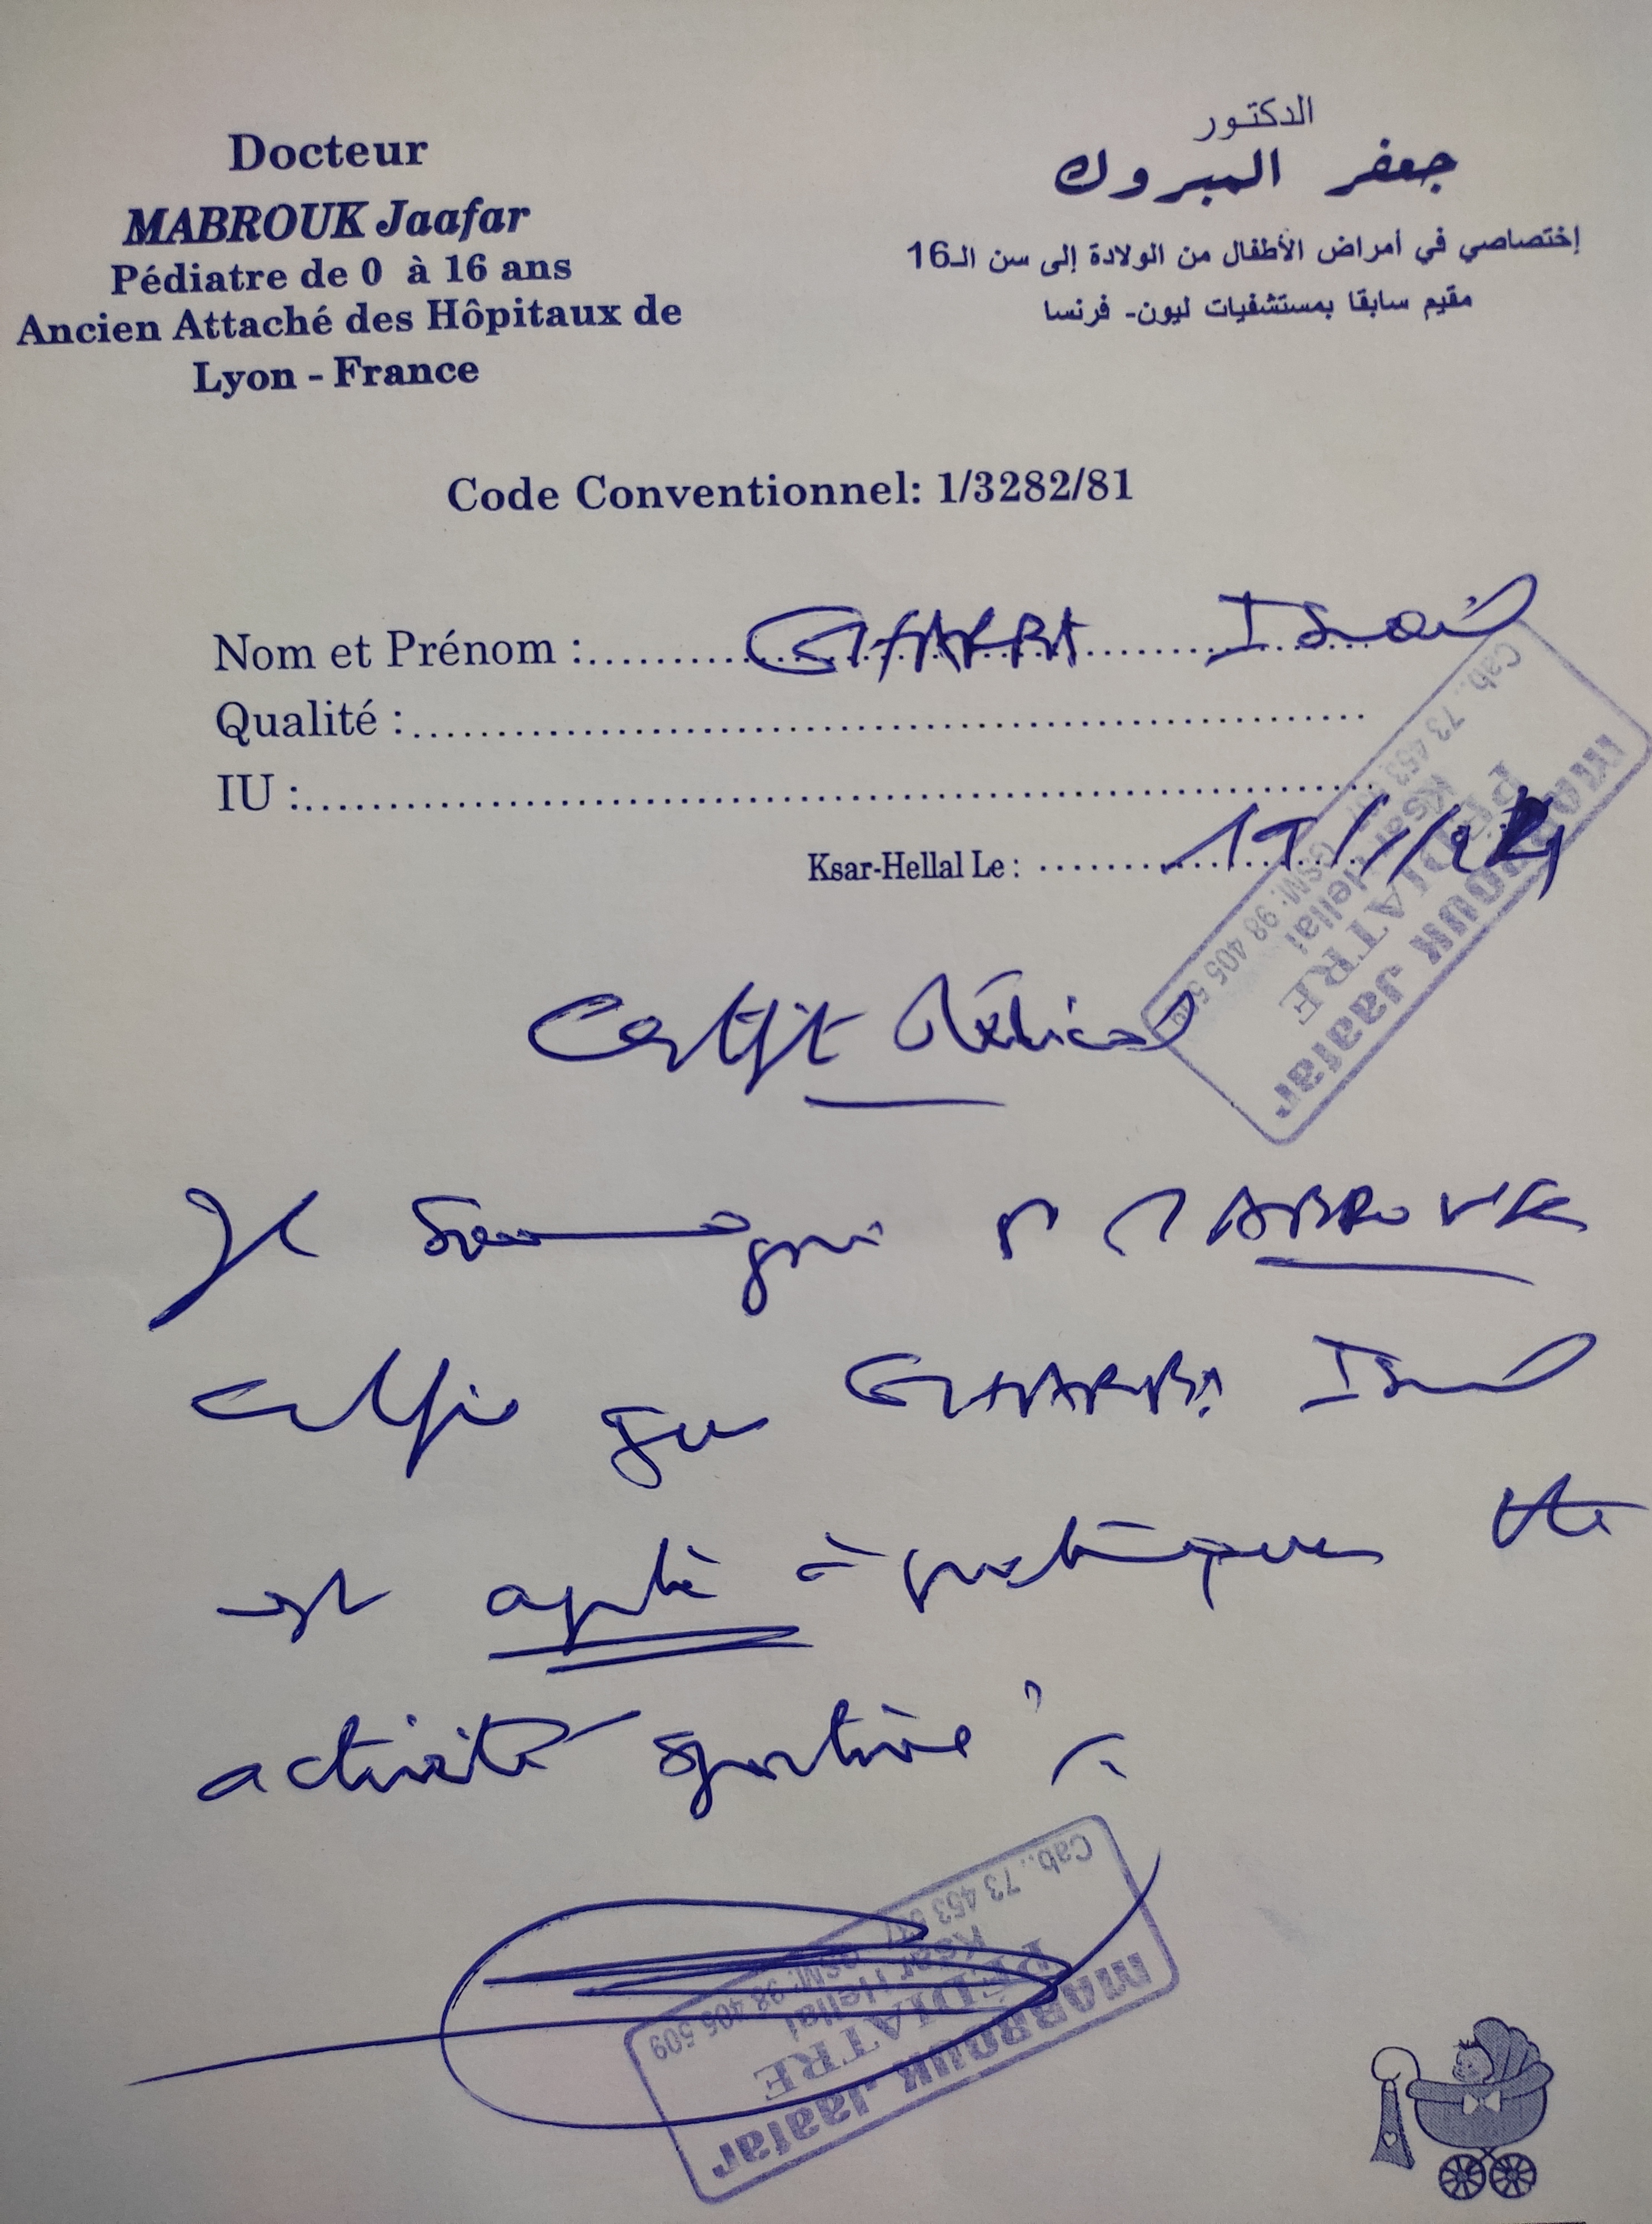 Docteur
MABROUK Jaafar
Pédiatre de 0 à 16 ans
Ancien Attaché des Hôpitaux de
Lyon - France
الدكتور
جعفر المبروك
إختصاصي في أمراض الأطفال من الولادة إلى سن الـ16
مقيم سابقا بمستشفيات ليون- فرنسا
Code Conventionnel: 1/3282/81
Nom et Prénom : GHARBI
Qualité :
IU :
Ksar-Hellal Le :
MABROUK Jaafar
PÉDIATRE
Ksar Hellal
Cab.: 73 453 GSM: 98 405 509
Certifit Médical
Je soussigné Dr MABROUK
certifie que GHARBI
est apte à pratiquer
activité sportive
MABROUK Jaafar
PÉDIATRE
Ksar Hellal
Cab.: 73 453 GSM: 98 405 509